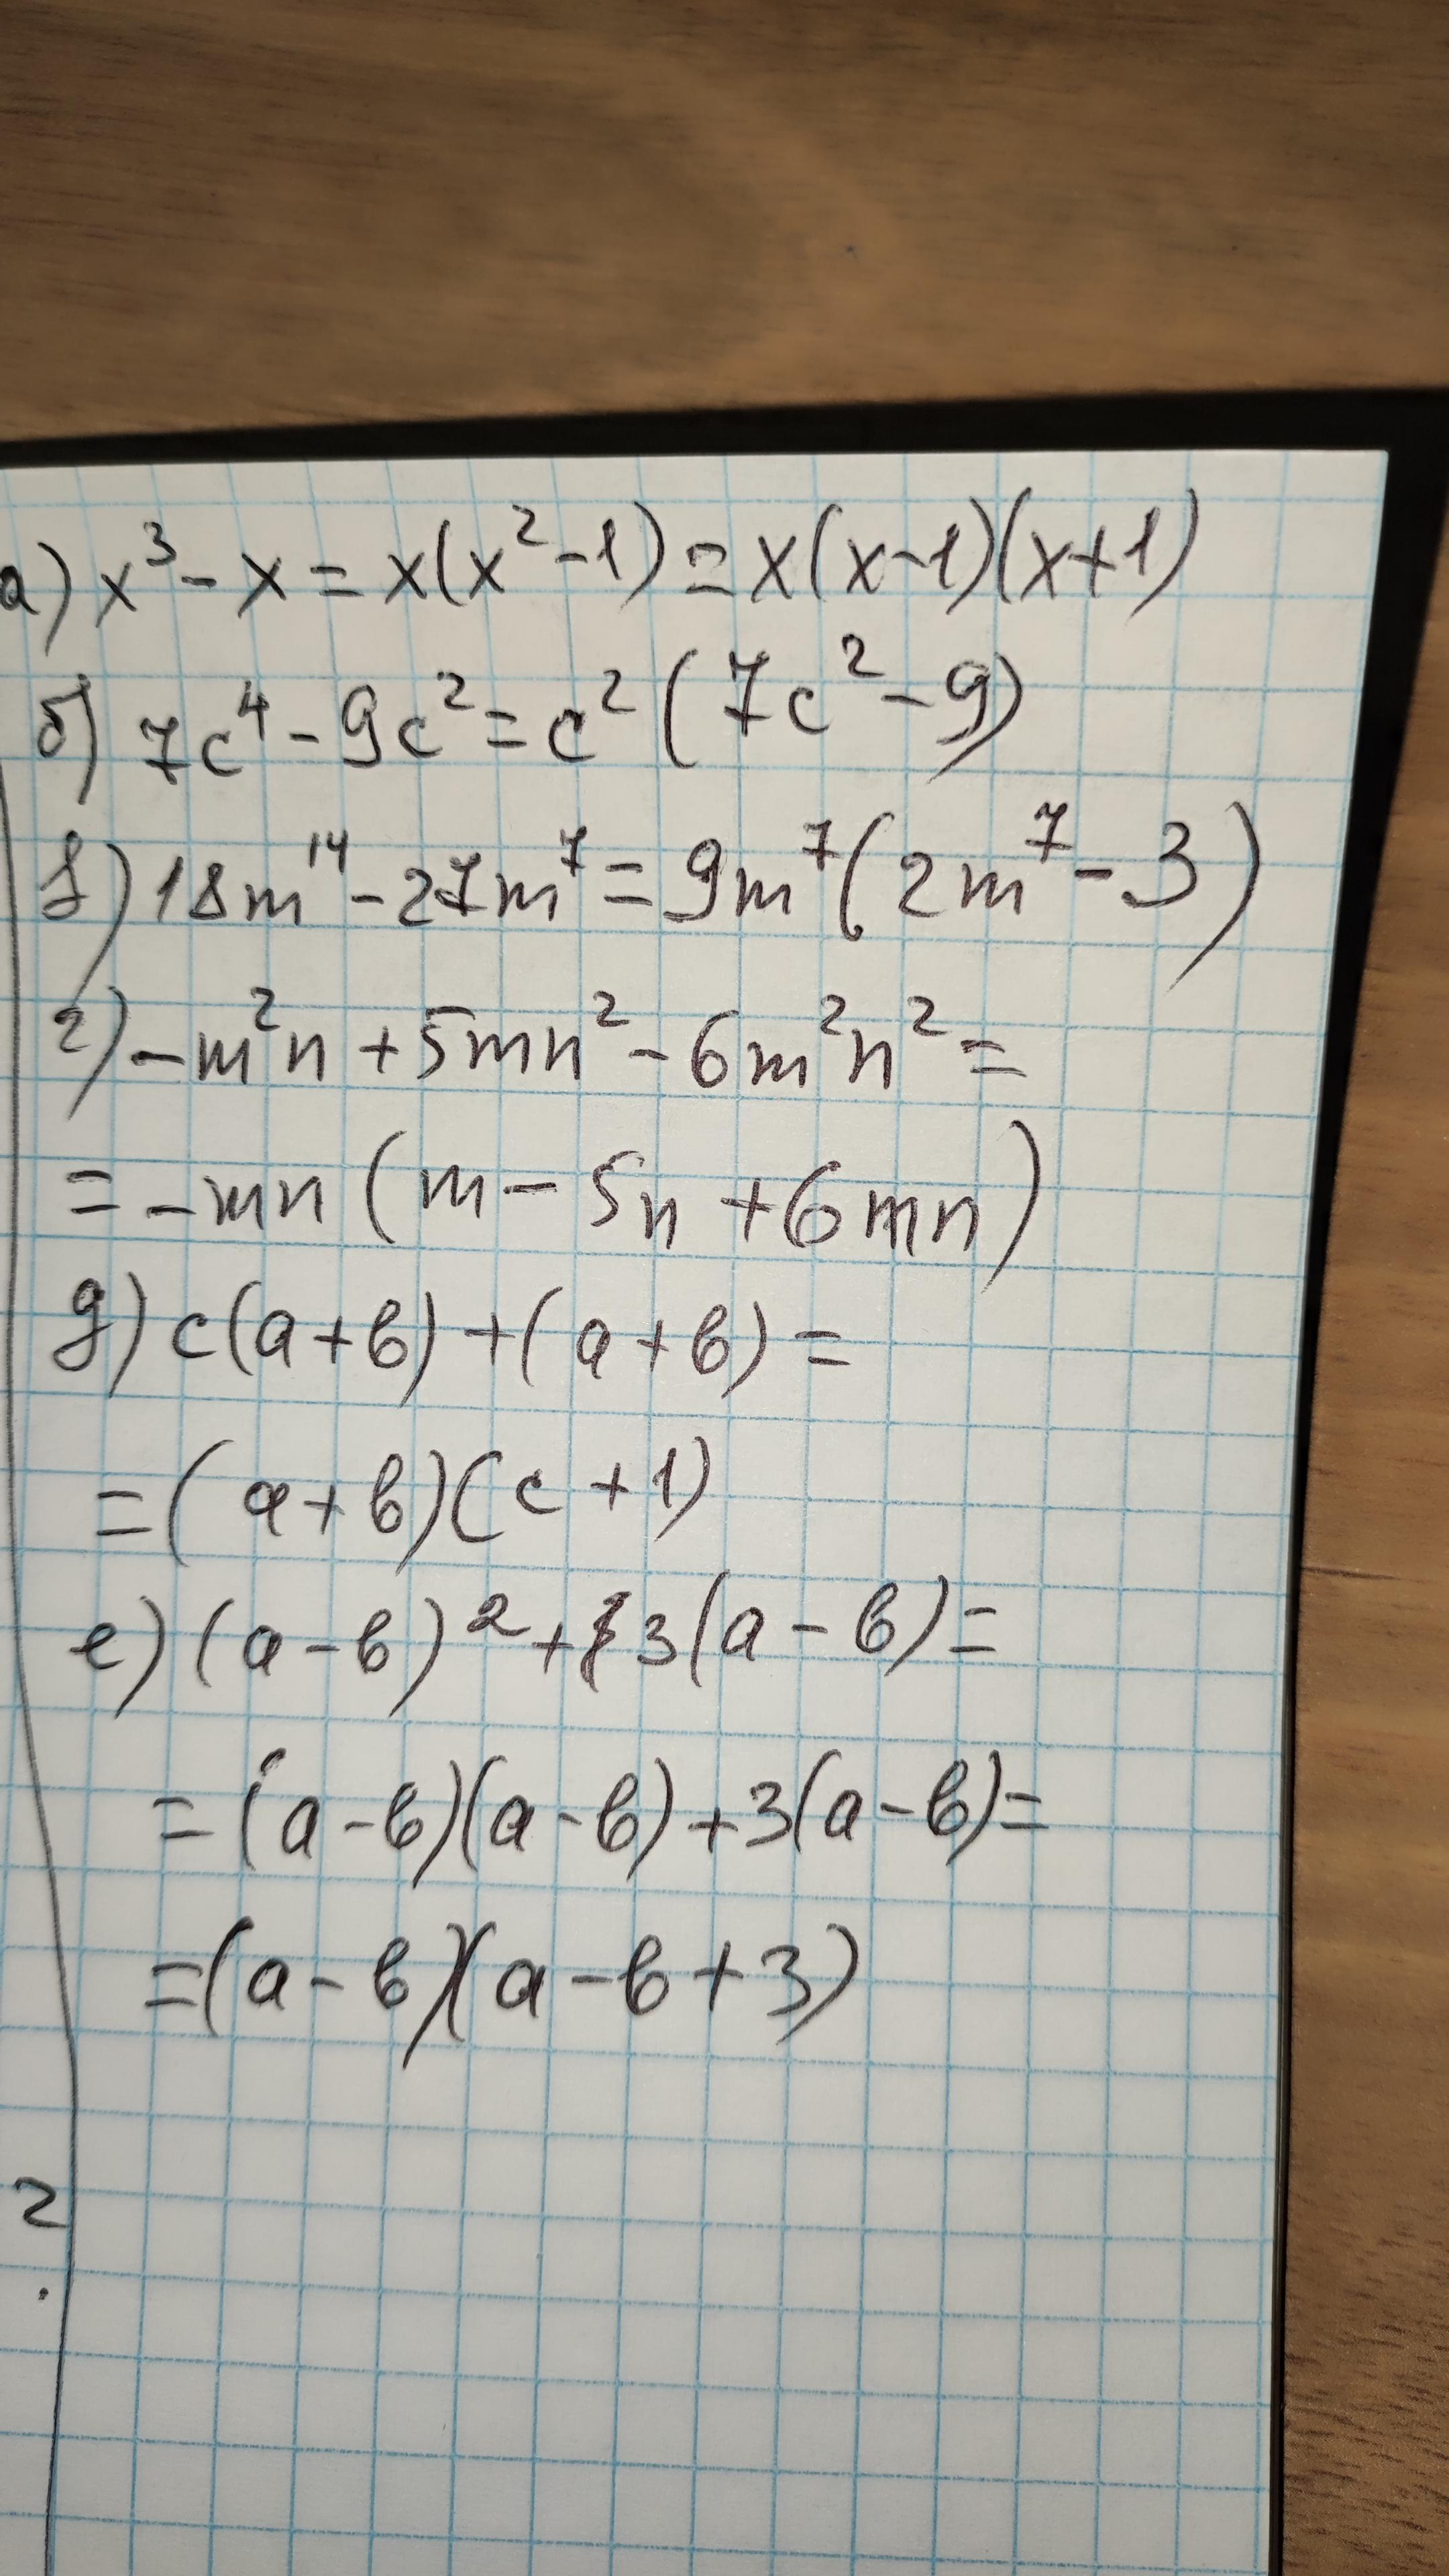 а) x³ - x = x(x² - 1) = x(x-1)(x+1)
б) 7c⁴ - 9c² = c² (7c² - 9)
в) 18m¹⁴ - 27m⁷ = 9m⁷(2m⁷ - 3)
г) -m²n + 5mn² - 6m²n² =
= -mn (m - 5n + 6mn)
д) c(a+b) + (a+b) =
= (a+b)(c+1)
е) (a-b)² + 3(a-b) =
= (a-b)(a-b) + 3(a-b) =
= (a-b)(a-b+3)
2
.